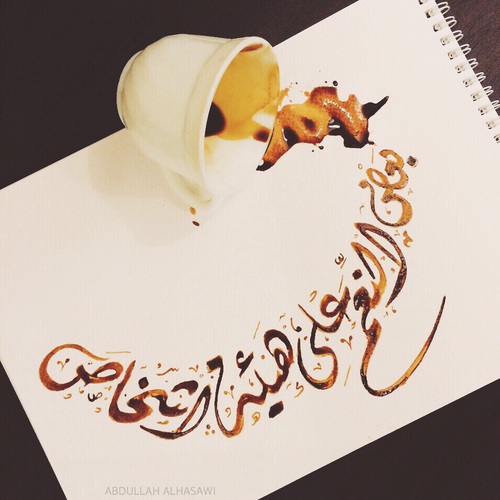 بعض النعم على هيئة أشخاص
ABDULLAH ALHASAWI